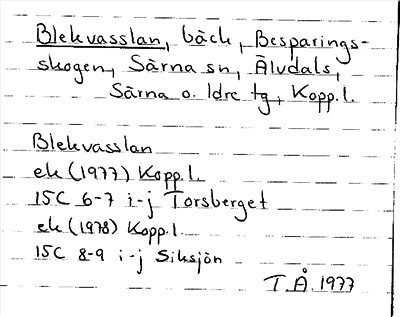 Blekvasslan, bäck, Besparings-
skogen, Särna sn, Älvdals,
Särna o. Idre tg, Kopp.l.
Blekvasslan
ek (1977) Kopp.l.
15C 6-7 i-j Torsberget
ek (1978) Kopp.l.
15C 8-9 i-j Siksjön
T.Å. 1977